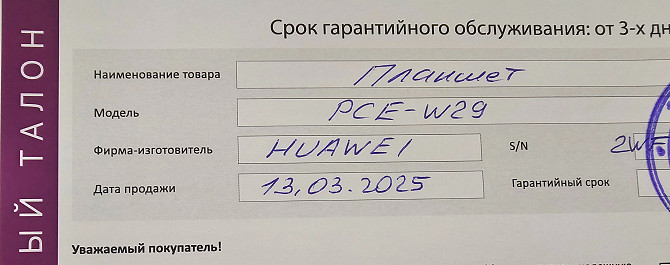 ЫЙ ТАЛОН
Срок гарантийного обслуживания: от 3-х дн
Наименование товара Планшет
Модель PCE-W29
Фирма-изготовитель HUAWEI S/N
Дата продажи 13.03.2025 Гарантийный срок
Уважаемый покупатель!